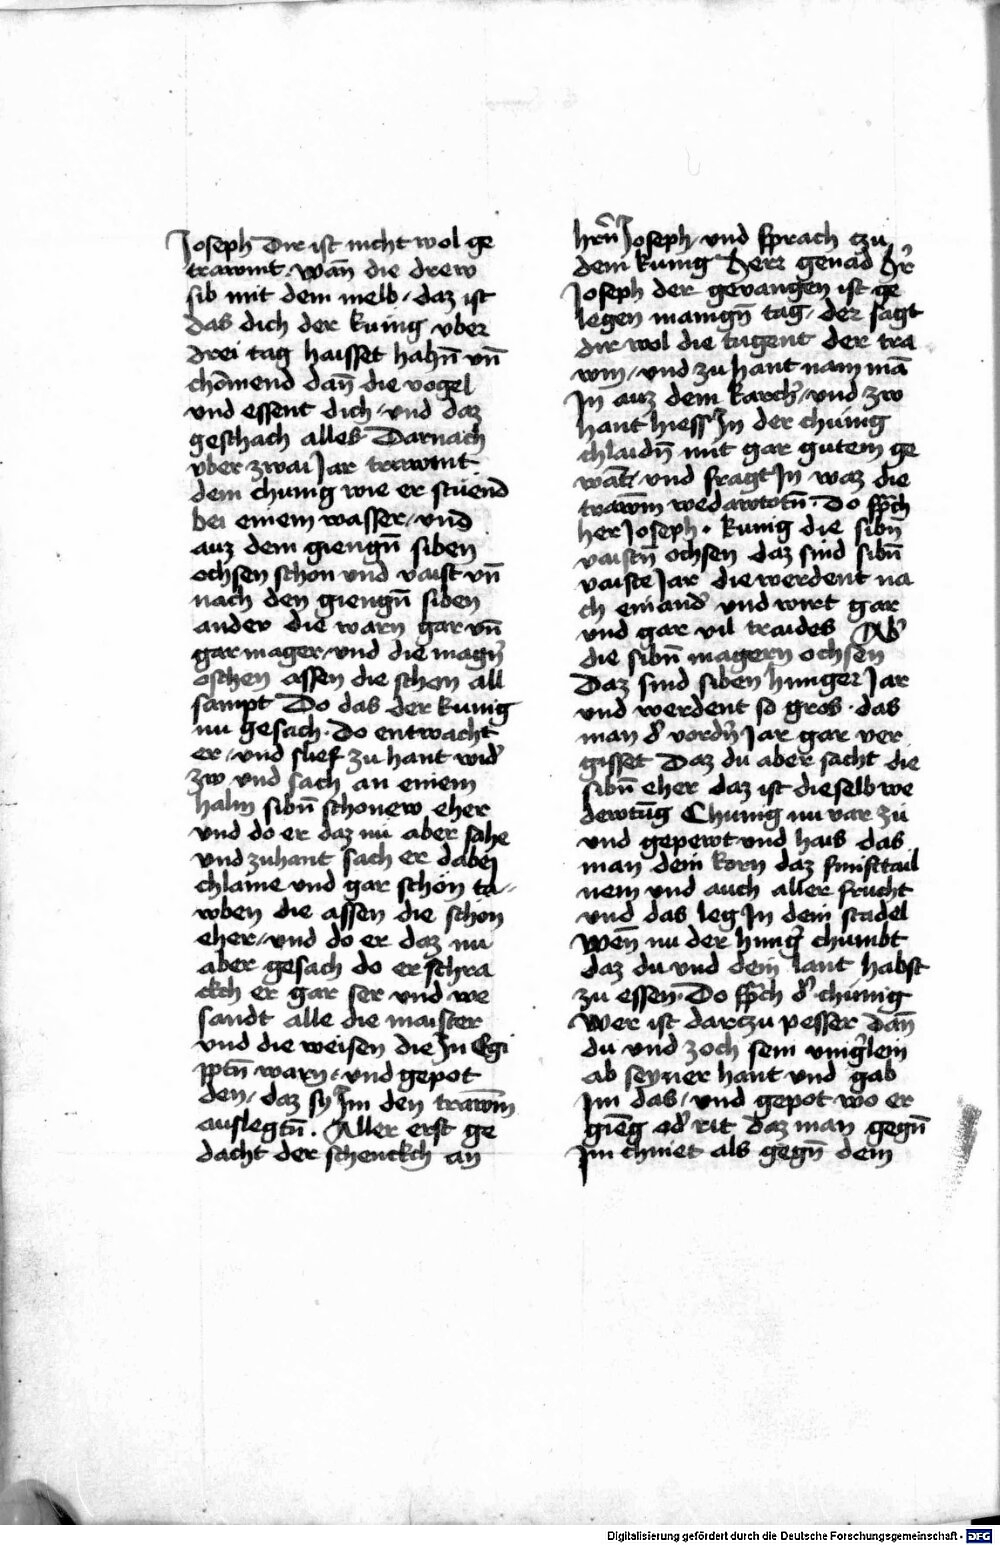 Joseph Dir ist nicht wol ge
trawmt. Wan̄ die drew
sib mit dem melb / daz ist
das dich der kunig vber
drei tag haisset hahn̄ vn̄
chōmend dan̄ die vogel
vnd essent dich / vnd daz
geschach alles Darnach
vber zwai Jar trawmt
dem chunig wie er stuend
bei einem wasser / vnd
auz dem giengn̄ siben
ochsen schon vnd vaist vn̄
nach den giengn̄ siben
ander die warn gar vn̄
gar mager / vnd die magn̄
oschen assen die schon all
sampt Do das der kunig
nu gesach. Do entwacht
er / vnd slief zu hant wid̾
zw vnd sach an einem
halm sibn̄ schonew eher
vnd do er daz nu aber sahe
vnd zuhant sach er dabei
chlaine vnd gar schon ta//
wben die assen die schon
eher / vnd do er daz nu
aber gesach do er schra
ckch er gar ser vnd we
sandt alle die maister
vnd die weisen die Jn Egi
pptn̄ warn / vnd gepot
den / daz sy Jm den trawm̄
auslegtn̄. Aller erst ge
dacht der schenckch an
hrn̄ Joseph / vnd sprach czu
dem kunig Herr genad H̾r
Joseph der gevangen ist ge
legen manign̄ tag / der sagt
dir wol die tugent der tra
wm / vnd zu hant nam mā
Jn auz dem karch̾ / vnd zw
hant hiess Jn der chunig
chlaidn̄ mit gar gutem ge
wāt / vnd fragt Jn waz die
trawm̄ wedawtotn̄. Do sp̄ch
her Joseph. kunig die sibn̄
vaistn̄ ochsen daz sind sibn̄
vaiste Jar die werdent na
ch einand̾ vnd wirt gar
vnd gar vil traides Ab̾
die sibn̄ magern ochsen
Daz sind siben hunger Jar
vnd werdent so gros. das
man d̾ vordn̾ Jar gar ver
gisset Daz du aber sacht die
sibn̄ eher daz ist dieselb we
dewtūg Chunig nu var zu
vnd gepewt vnd hais das
man dem korn daz funfttail
nem vnd auch aller frucht
vnd das leg Jn dein stadel
Wen̄ nu der hung̾ chumbt
daz du vnd dein lant habst
zu essen. Do sp̄ch d̾ chunig
Wer ist darczu pesser dan̄
du vnd zoch sein ving̾lein
ab seyner hant vnd gab
Jm das / vnd gepot wo er
giēg od̾ rit daz man gegn̄
Jm chniet als gegn̄ dem
Digitalisierung gefördert durch die Deutsche Forschungsgemeinschaft - DFG